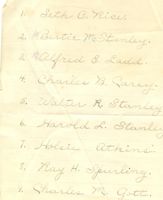 1. Seth A. Rice.
2. Bertie M. Stanley.
3. Alfred E. Ladd.
4. Charles W.
5. Walter R. Stanley
6. Harold L. Stanley
7. Atkins
8. Ray H. Spurling.
9. Charles M. Gott.